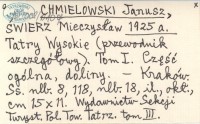 CHMIELOWSKI Janusz,
ŚWIERZ Mieczysław 1925 a.
Tatry Wysokie (przewodnik
szczegółowy). Tom I. Część
ogólna, doliny. — Kraków.
Ss. nlb. 8, 118, nlb. 18, il., okł.,
cm 15 x 11. Wydawnictw. Sekcji
Turyst. Pol. Tow. Tatrz. tom III.